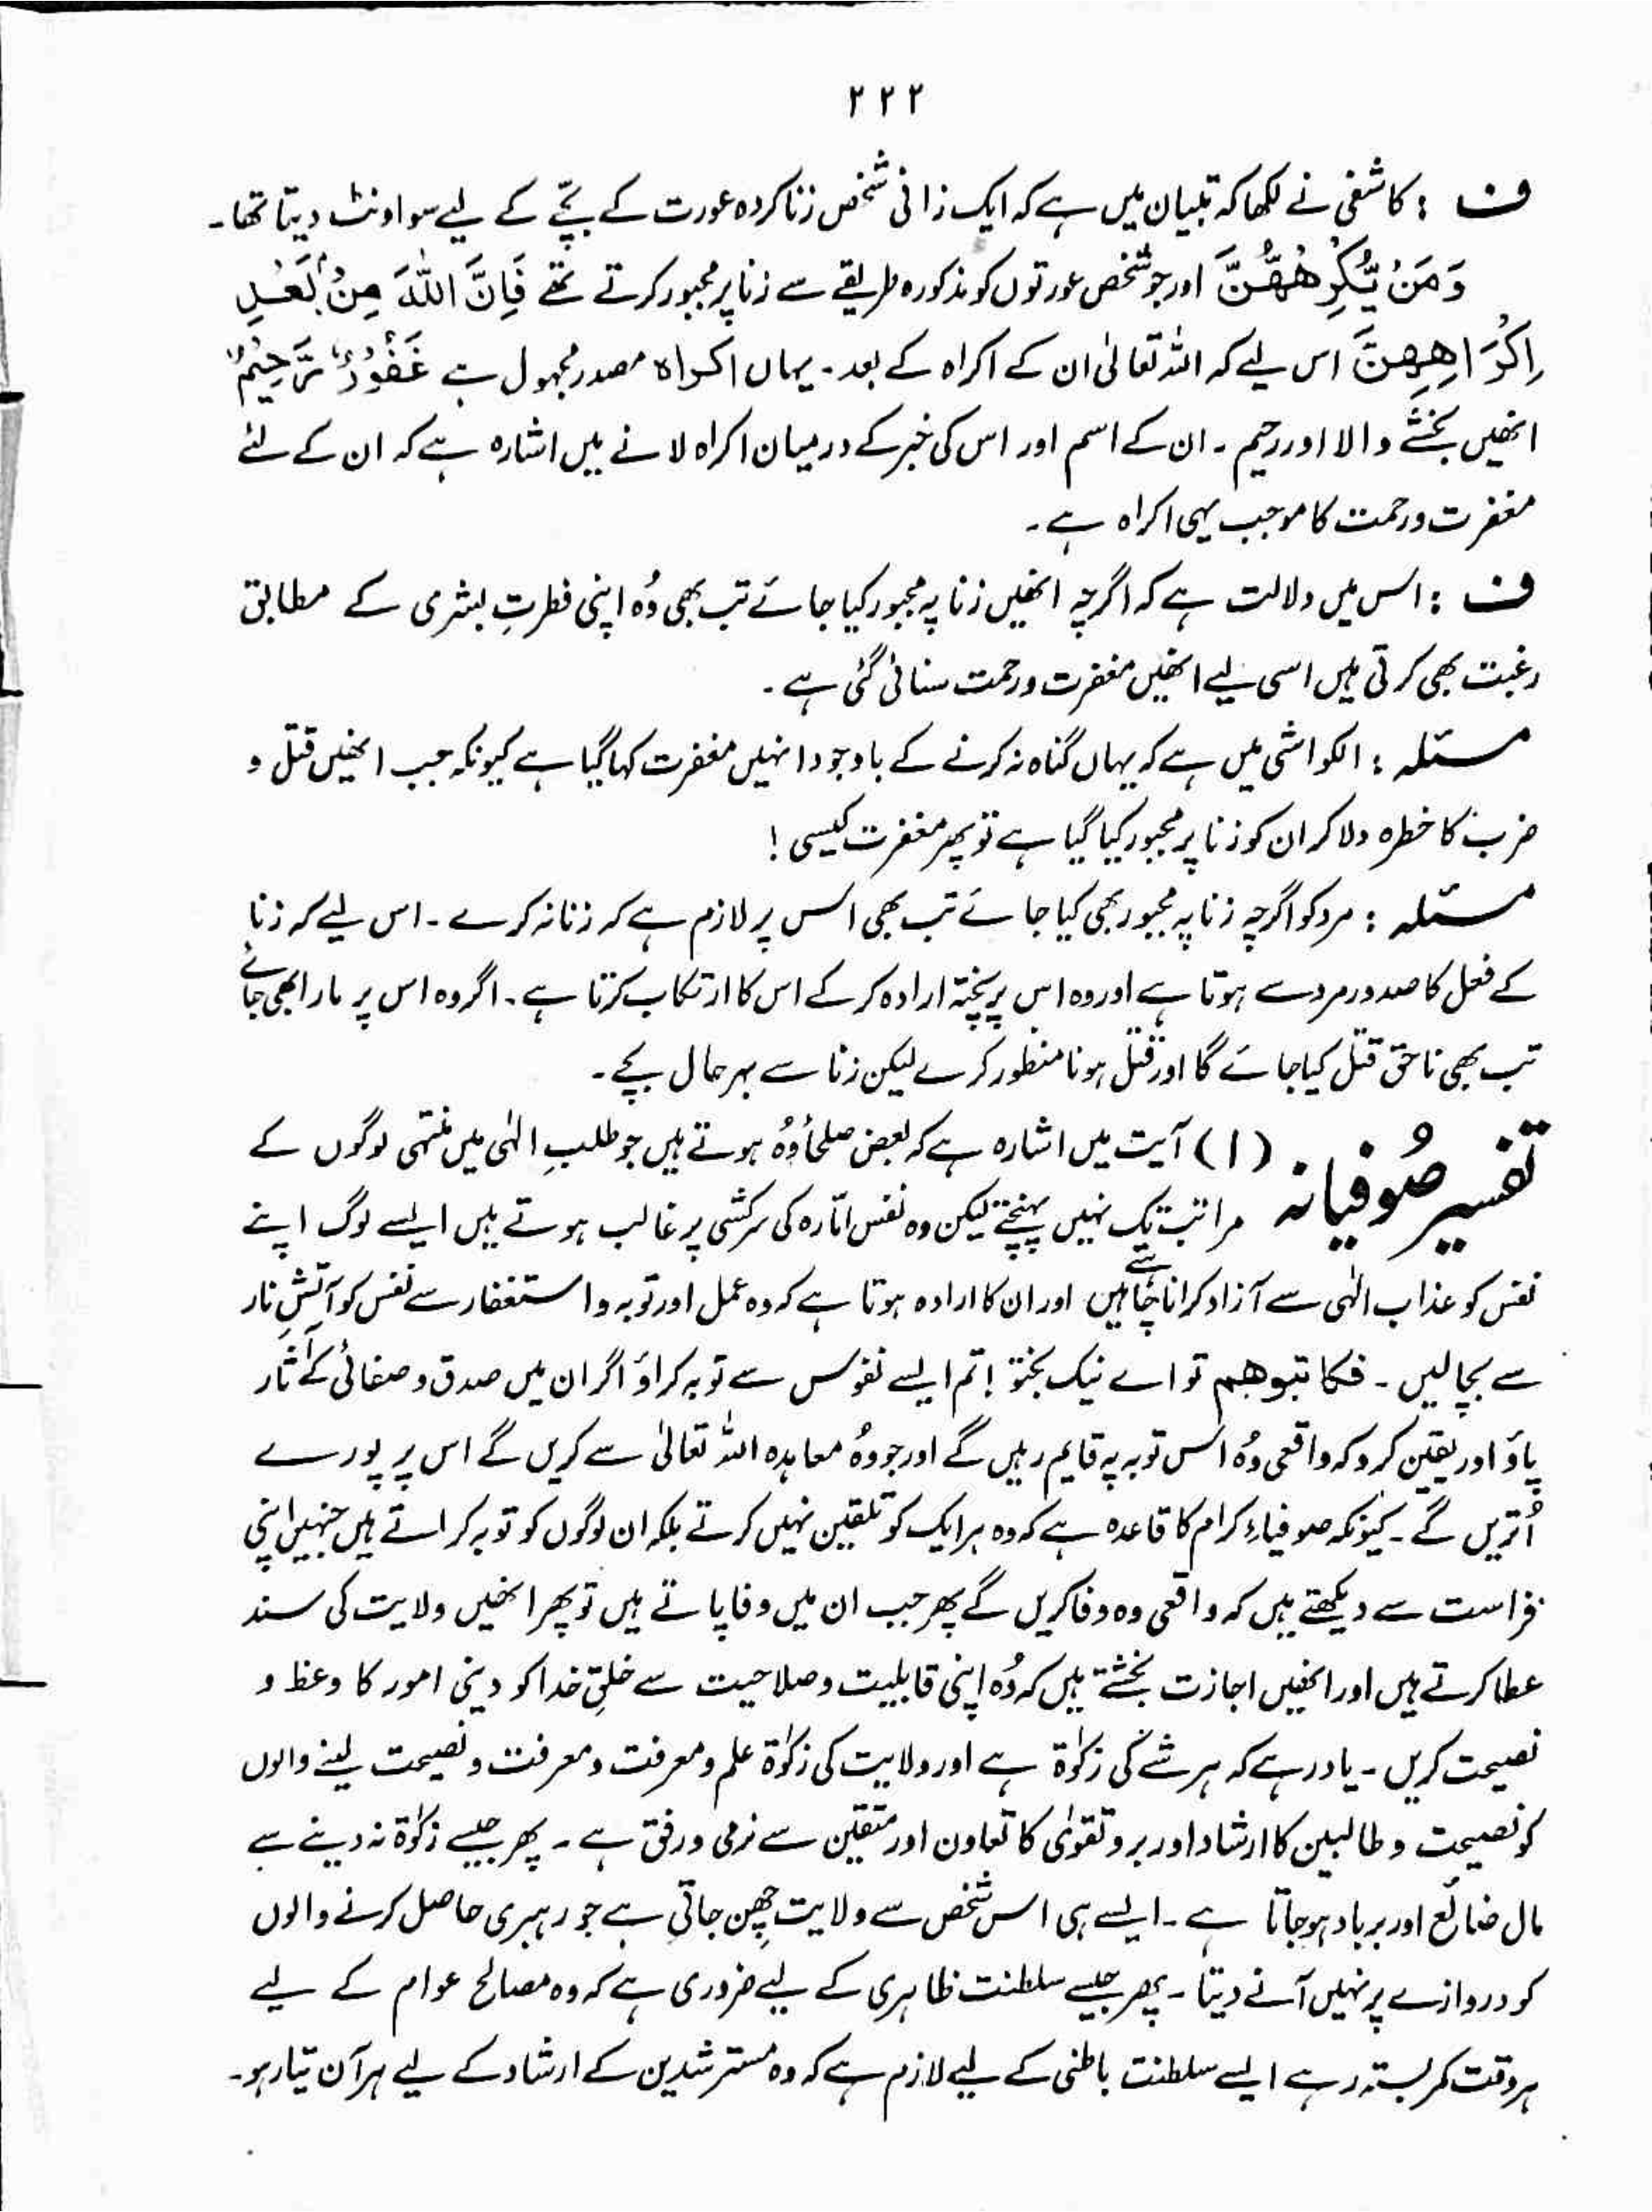 ۲۲۲
ف : کاشفی نے لکھا کہ تبیان میں ہے کہ ایک زانی شخص زنا کردہ عورت کے بچّے کے لیے سو اونٹ دیتا تھا۔
وَمَنْ يُّكْرِهْهُّنَّ اور جو شخص عورتوں کو مذکورہ طریقے سے زنا پر مجبور کرتے تھے فَاِنَّ اللّٰهَ مِنْۢ بَعْدِ
اِكْرَاهِهِنَّ اس لیے کہ اللہ تعالیٰ ان کے اکراہ کے بعد۔ یہاں اکراہ مصدر مجہول ہے غَفُوْرٌ رَّحِيْمٌ
انھیں بخشنے والا اور رحیم۔ ان کے اسم اور اس کی خبر کے درمیان اکراہ لانے میں اشارہ ہے کہ ان کے لئے
مغفرت ورحمت کا موجب یہی اکراہ ہے۔
ف : اس میں دلالت ہے کہ اگرچہ انھیں زنا پہ مجبور کیا جائے تب بھی وُہ اپنی فطرتِ بشری کے مطابق
رغبت بھی کرتی ہیں اسی لیے انھیں مغفرت ورحمت سنائی گئی ہے۔
مسئلہ : الکواشی میں ہے کہ یہاں گناہ نہ کرنے کے باوجود انہیں مغفرت کہا گیا ہے کیونکہ جب انھیں قتل و
ضرب کا خطرہ دلا کر ان کو زنا پر مجبور کیا گیا ہے تو پھر مغفرت کیسی !
مسئلہ : مرد کو اگرچہ زنا پہ مجبور بھی کیا جائے تب بھی اس پر لازم ہے کہ زنا نہ کرے۔ اس لیے کہ زنا
کے فعل کا صدور مرد سے ہوتا ہے اور وہ اس پر پختہ ارادہ کر کے اس کا ارتکاب کرتا ہے۔ اگر وہ اس پر مارا بھی جائے
تب بھی ناحق قتل کیا جائے گا اور قتل ہونا منظور کرے لیکن زنا سے بہرحال بچے۔
تفسیر صُوفیانہ (۱) آیت میں اشارہ ہے کہ بعض صلحأ وُہ ہوتے ہیں جو طلبِ الٰہی میں منتہی لوگوں کے
مراتب تک نہیں پہنچتے لیکن وہ نفس امّارہ کی سرکشی پر غالب ہوتے ہیں ایسے لوگ اپنے
نفس کو عذاب الٰہی سے آزاد کرانا چاہتے ہیں اور ان کا ارادہ ہوتا ہے کہ وہ عمل اور توبہ و استغفار سے نفس کو آتشِ نار
سے بچالیں۔ فکاتبوھم تو اے نیک بختو ! تم ایسے نفوس سے توبہ کراؤ اگر ان میں صدق و صفائی کے آثار
پاؤ اور یقین کرو کہ واقعی وُہ اس توبہ پہ قایم رہیں گے اور جو وُہ معاہدہ اللہ تعالیٰ سے کریں گے اس پر پورے
اُتریں گے۔ کیونکہ صوفیاءِ کرام کا قاعدہ ہے کہ وہ ہر ایک کو تلقین نہیں کرتے بلکہ ان لوگوں کو توبہ کراتے ہیں جنہیں اپنی
فراست سے دیکھتے ہیں کہ واقعی وہ وفا کریں گے پھر جب ان میں وفا پاتے ہیں تو پھر انھیں ولایت کی سند
عطا کرتے ہیں اور انھیں اجازت بخشتے ہیں کہ وُہ اپنی قابلیت و صلاحیت سے خلقِ خدا کو دینی امور کا وعظ و
نصیحت کریں۔ یاد رہے کہ ہر شے کی زکوٰۃ ہے اور ولایت کی زکوٰۃ علم و معرفت و معرفت و نصیحت لینے والوں
کو نصیحت و طالبین کا ارشاد اور بر و تقوٰی کا تعاون اور متقین سے نرمی و رفق ہے۔ پھر جیسے زکوٰۃ نہ دینے سے
مال ضائع اور برباد ہو جاتا ہے۔ ایسے ہی اس شخص سے ولایت چھن جاتی ہے جو رہبری حاصل کرنے والوں
کو دروازے پر نہیں آنے دیتا۔ پھر جیسے سلطنت ظاہری کے لیے ضروری ہے کہ وہ مصالح عوام کے لیے
ہر وقت کمربستہ رہے ایسے سلطنت باطنی کے لیے لازم ہے کہ وہ مسترشدین کے ارشاد کے لیے ہر آن تیار ہو۔